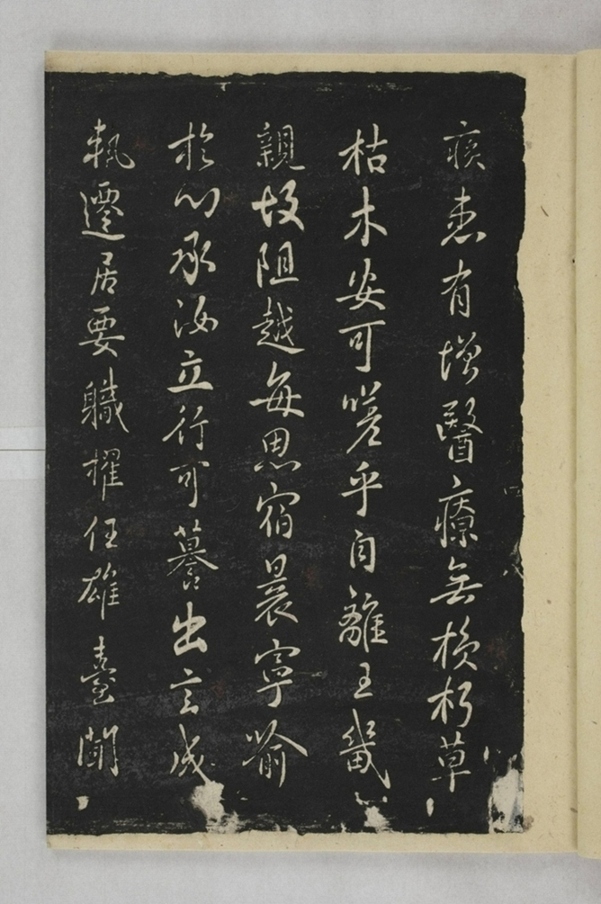 疾患有增醫療無損朽草
枯木安可嗟乎自離王畿
親故阻越每思宿昔寧喻
於心承汝立行可養出言成
軌遷居要職擢任雄臺聞